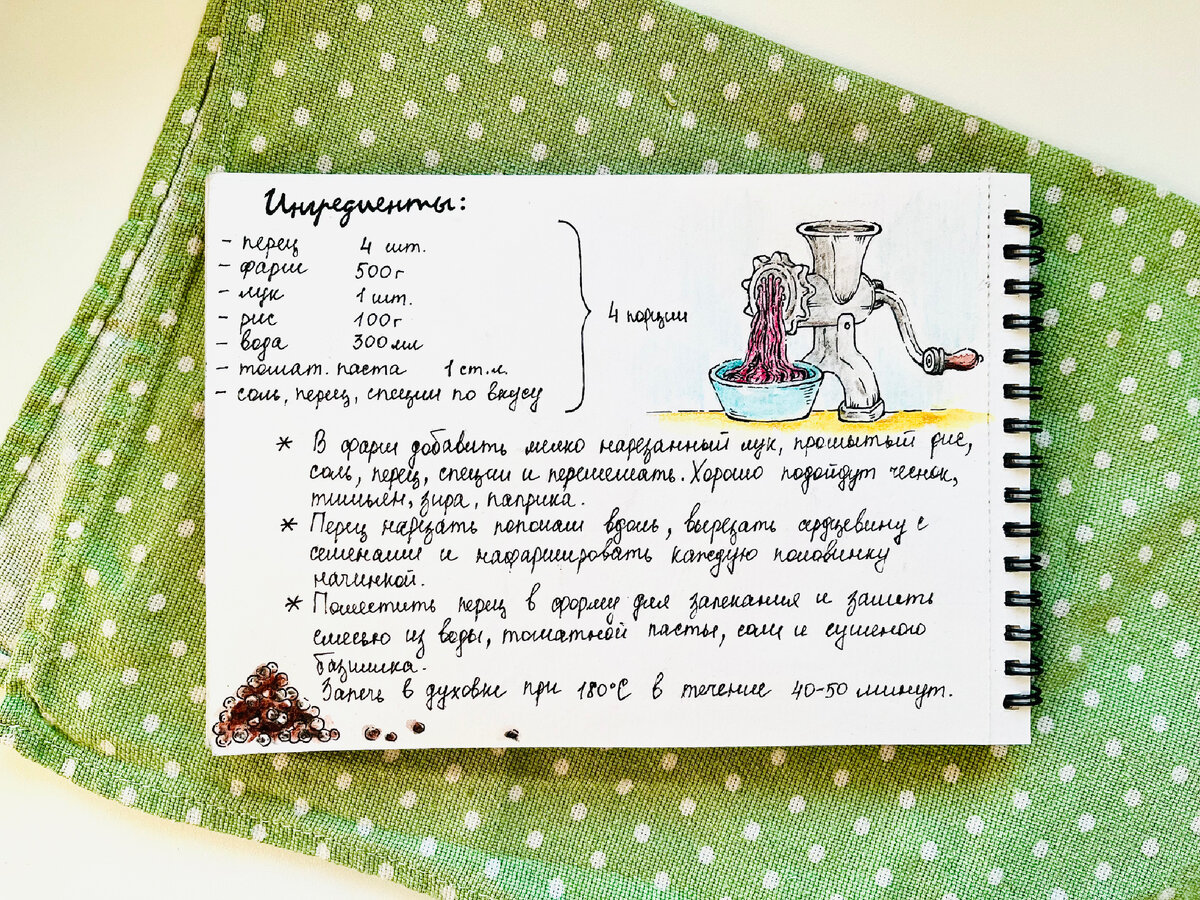 Ингредиенты:
- перец 4 шт.
- фарш 500г
- лук 1 шт.
- рис 100г
- вода 300мл
- томат. паста 1 ст.л.
- соль, перец, специи по вкусу
4 порции
* В фарш добавить мелко нарезанный лук, промытый рис,
соль, перец, специи и перемешать. Хорошо подойдут чеснок,
тимьян, зира, паприка.
* Перец нарезать пополам вдоль, вырезать сердцевину с
семенами и нафаршировать каждую половинку
начинкой.
* Поместить перец в форму для запекания и залить
смесью из воды, томатной пасты, соли и сушеного
базилика.
Запечь в духовке при 180°С в течение 40-50 минут.